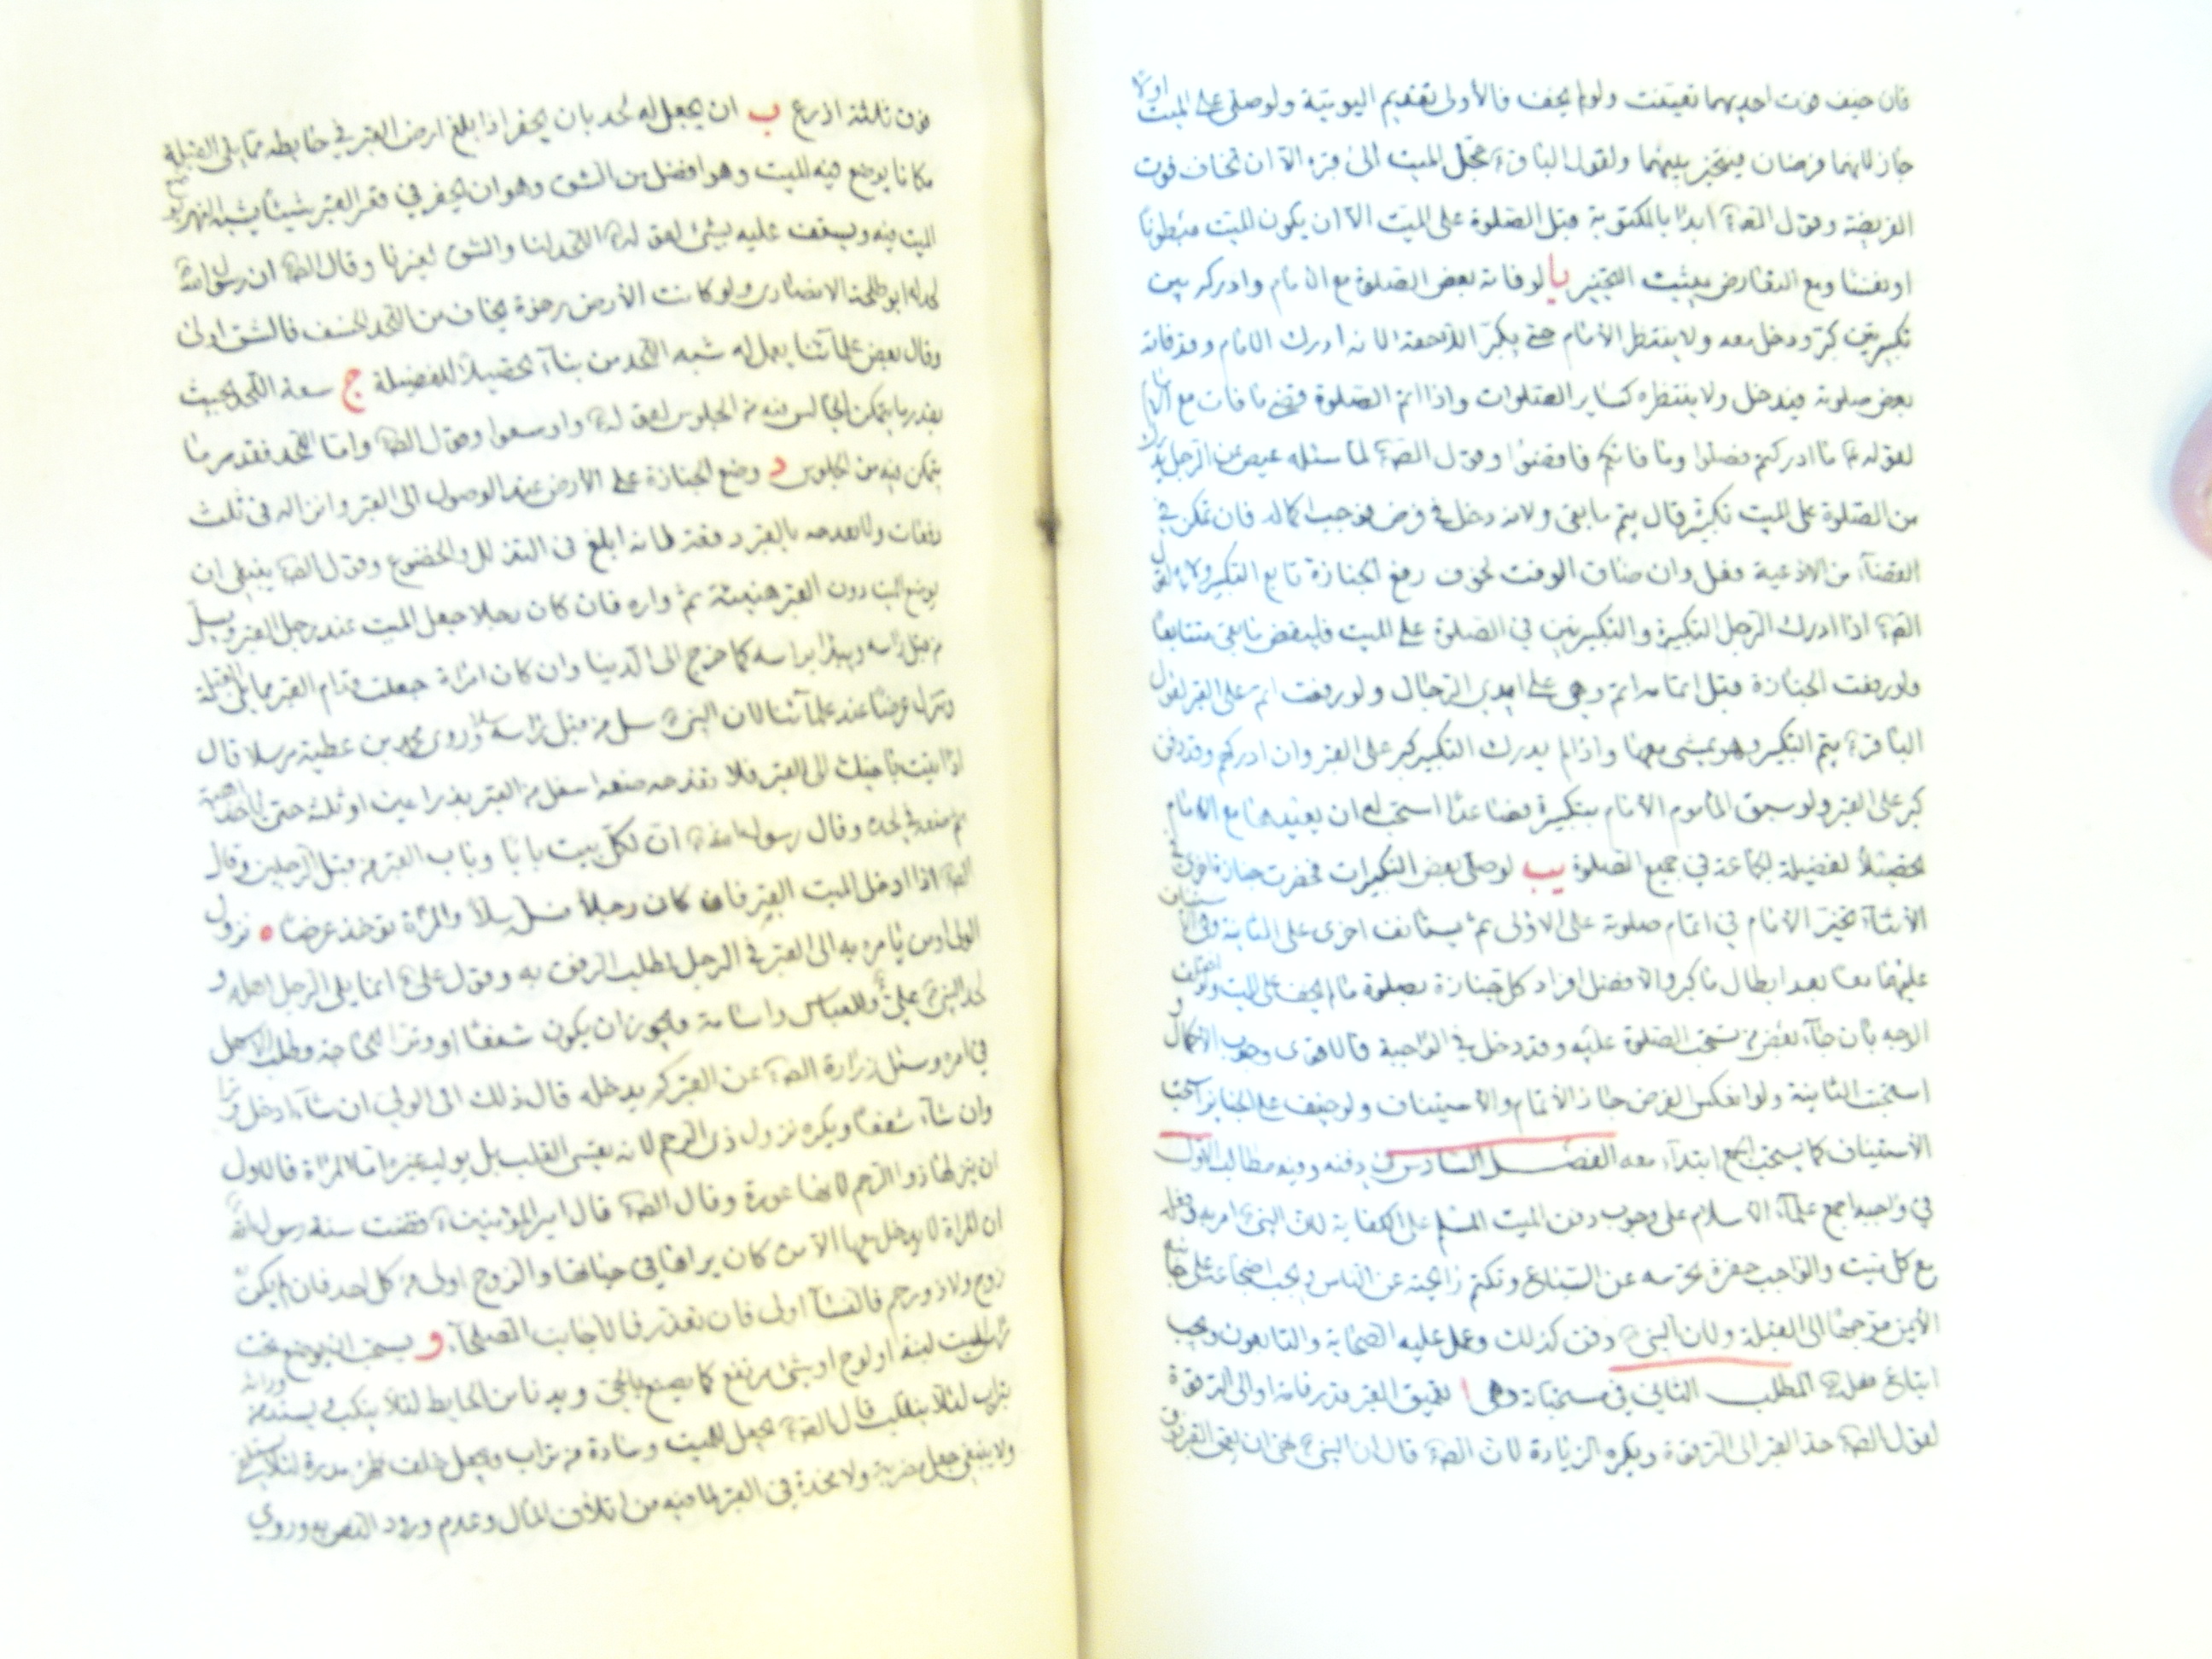 فان خيف فوت احديهما تعينت ولو لم يخف فالأولى تقديم اليومية ولو صلى على الميت اولا
جاز لانهما فرضان فيتخير بينهما ولقول الباقر؏ عجل الميت الى قبره الا ان تخاف فوت
الفريضة وقول الص؏ ابدا بالمكتوبة قبل الصلوة على الميت الا ان يكون الميت مبطونا
او نفساء ومع التعارض يثبت التخيير يا لو فاته بعض الصلوة مع الامام وادركه بين
تكبيرتين كبر ودخل معه ولا ينتظر الأمام حتى يكبر اللاحقة لانه ادرك الامام وقد فاته
بعض صلوته فيدخل ولا ينتظره كساير الصلوات واذا اتم الصلوة قضى ما فات مع الامام
لقوله ما ادركتم فصلوا وما فاتكم فاقضوا وقول الص؏ لما سئله عيص عن الرجل يدرك
من الصلوة على الميت تكبيرة قال يتم ما بقى ولانه دخل في فرض فوجب اكماله فان تمكن في
القضاء من الادعية فعل وان ضاق الوقت لخوف رفع الجنازة تابع التكبير ولاء لقول
الص؏ اذا ادرك الرجل التكبيرة والتكبيرتين في الصلوة على الميت فليقض ما بقى متتابعا
ولو رفعت الجنازة قبل اتمامه اتم وهي على ايدي الرجال ولو رفعت اتم على القبر لقول
الباقر؏ يتم التكبير وهو يمشي معها واذا لم يدرك التكبير كبر على القبر وان ادركهم وقد دفن
كبر على القبر ولو سبق الماموم الامام بتكبيرة فصاعدا استحب له ان يعيدها مع الامام
تحصيلا لفضيلة الجماعة في جميع الصلوة يب لو صلى بعض التكبيرات فحضرت جنازة اخرى في
الأثناء تخير الامام في اتمام صلوته على الاولى ثم يستانف اخرى على الثانية وفي الاستيناف
عليهما معا بعد ابطال ما كبر والافضل افراد كل جنازة بصلوة ما لم يخف على الميت ولو اختلف
الوجه بان جاء بعض من تستحب الصلوة عليه وقد دخل في الواجبة فالاقوى وجوب الاكمال و
استحبت الثانية ولو انعكس الفرض جاز الأتمام والاستيناف ولو خيف على الجنايز استحب
الأستيناف كما يستحب الجمع ابتداء معه الفصــل السادس في دفنه وفيه مطالب الاول
في واجبه اجمع علماء الاسلام على وجوب دفن الميت المسلم على الكفاية لان النبي امر به وفعله
مع كل ميت والواجب حفرة تحرسه عن السباع وتكتم رايحته عن الناس ويجب اضجاعه على جانبه
الأيمن موجها الى القبلة ولان النبي دفن كذلك وعمل عليه الصحابة والتابعون ويجب
اتباع فعله المطلب الثاني في مستحباته وهي ا تعميق القبر قدر قامة او الى الترقوة
لقول الص؏ حد القبر الى الترقوة ويكره الزيادة لان الص؏ قال ان النبي نهى ان يعمق القبر فوق
فوق ثلثة اذرع ب ان يجعل له لحد بان يحفر اذا بلغ ارض القبر في حايطه مما يلي القبلة
مكانا يوضع فيه الميت وهو افضل من الشق وهو ان يحفر في قعر القبر شيئا يشبه النهر يوضع
الميت فيه ويسقف عليه بشئ لقوله اللحد لنا والشق لغيرنا وقال الص؏ ان رسول الله
لحد له ابو طلحة الانصاري ولو كانت الأرض رخوة يخاف من اللحد الخسف فالشق اولى
وقال بعض علمائنا يعمل له شبه اللحد من بناء تحصيلا للفضيلة ج سعة اللحد بحيث
بقدر ما يتمكن الجالس فيه من الجلوس لقوله واوسعوا وقول الص؏ واما اللحد فقدر ما
يتمكن فيه من الجلوس د وضع الجنازة على الأرض عند الوصول الى القبر وانزاله في ثلث
دفعات ولا يفدحه بالقبر دفعة لانه ابلغ في التذلل والخضوع وقول الص؏ ينبغي ان
يوضع الميت دون القبر هنيئة ثم واره فان كان رجلا جعل الميت عند رجل القبر ويسل
من قبل راسه ويبدا براسه كما خرج الى الدنيا وان كان امراة جعلت قدام القبر مما يلي القبلة
وتنزل عرضا عند علمائنا لان النبي سل من قبل راسه وروى محمد بن عطية مرسلا قال
اذا اتيت باخيك الى القبر فلا تفدحه ضعه اسفل من القبر بذراعين او ثلثة حتى ياخذ اهبته
ثم ضعه في لحده وقال رسول الله ان لكل بيت بابا وباب القبر من قبل الرجلين وقال
الص؏ اذا ادخل الميت القبر فان كان رجلا سل سلا والمراة توخذ عرضا ه نزول
الولي او من يامره به الى القبر في الرجل لطلب الرفق به وقول علي انما يلي الرجل اهله و
لحد النبي علي والعباس واسامة ويجوز ان يكون شفعا او وترا للحاجة وطلب الاسهل
في امره وسئل زرارة الص؏ عن القبر كم يدخله قال ذلك الى الولي ان شاء ادخل وترا
وان شاء شفعا ويكره نزول ذي الرحم لانه يقسى القلب بل يوليه غيره اما المراة فالاولى
ان ينزلها ذو الرحم لانها عورة وقال الص؏ قال امير المؤمنين مضت سنة رسول الله
ان المراة لا يدخل قبرها الا من كان يراها في حياتها والزوج اولى من كل احد فان لم يكن
زوج ولا ذو رحم فالنساء اولى فان تعذر فالاجانب الصلحاء و يستحب ان يوضع تحت
راس الميت لبنة او لوح او شئ مرتفع كما يصنع بالحي ويدنا من الحايط لئلا ينكب ويسند من ورائه
بتراب لئلا ينقلب قال الص؏ يجعل للميت وسادة من تراب ويجعل خلف ظهره مدرة لئلا يستلقي
ولا ينبغي جعل مضربة ولا مخدة في القبر لما فيه من اتلاف المال وعدم ورود النص به وروي